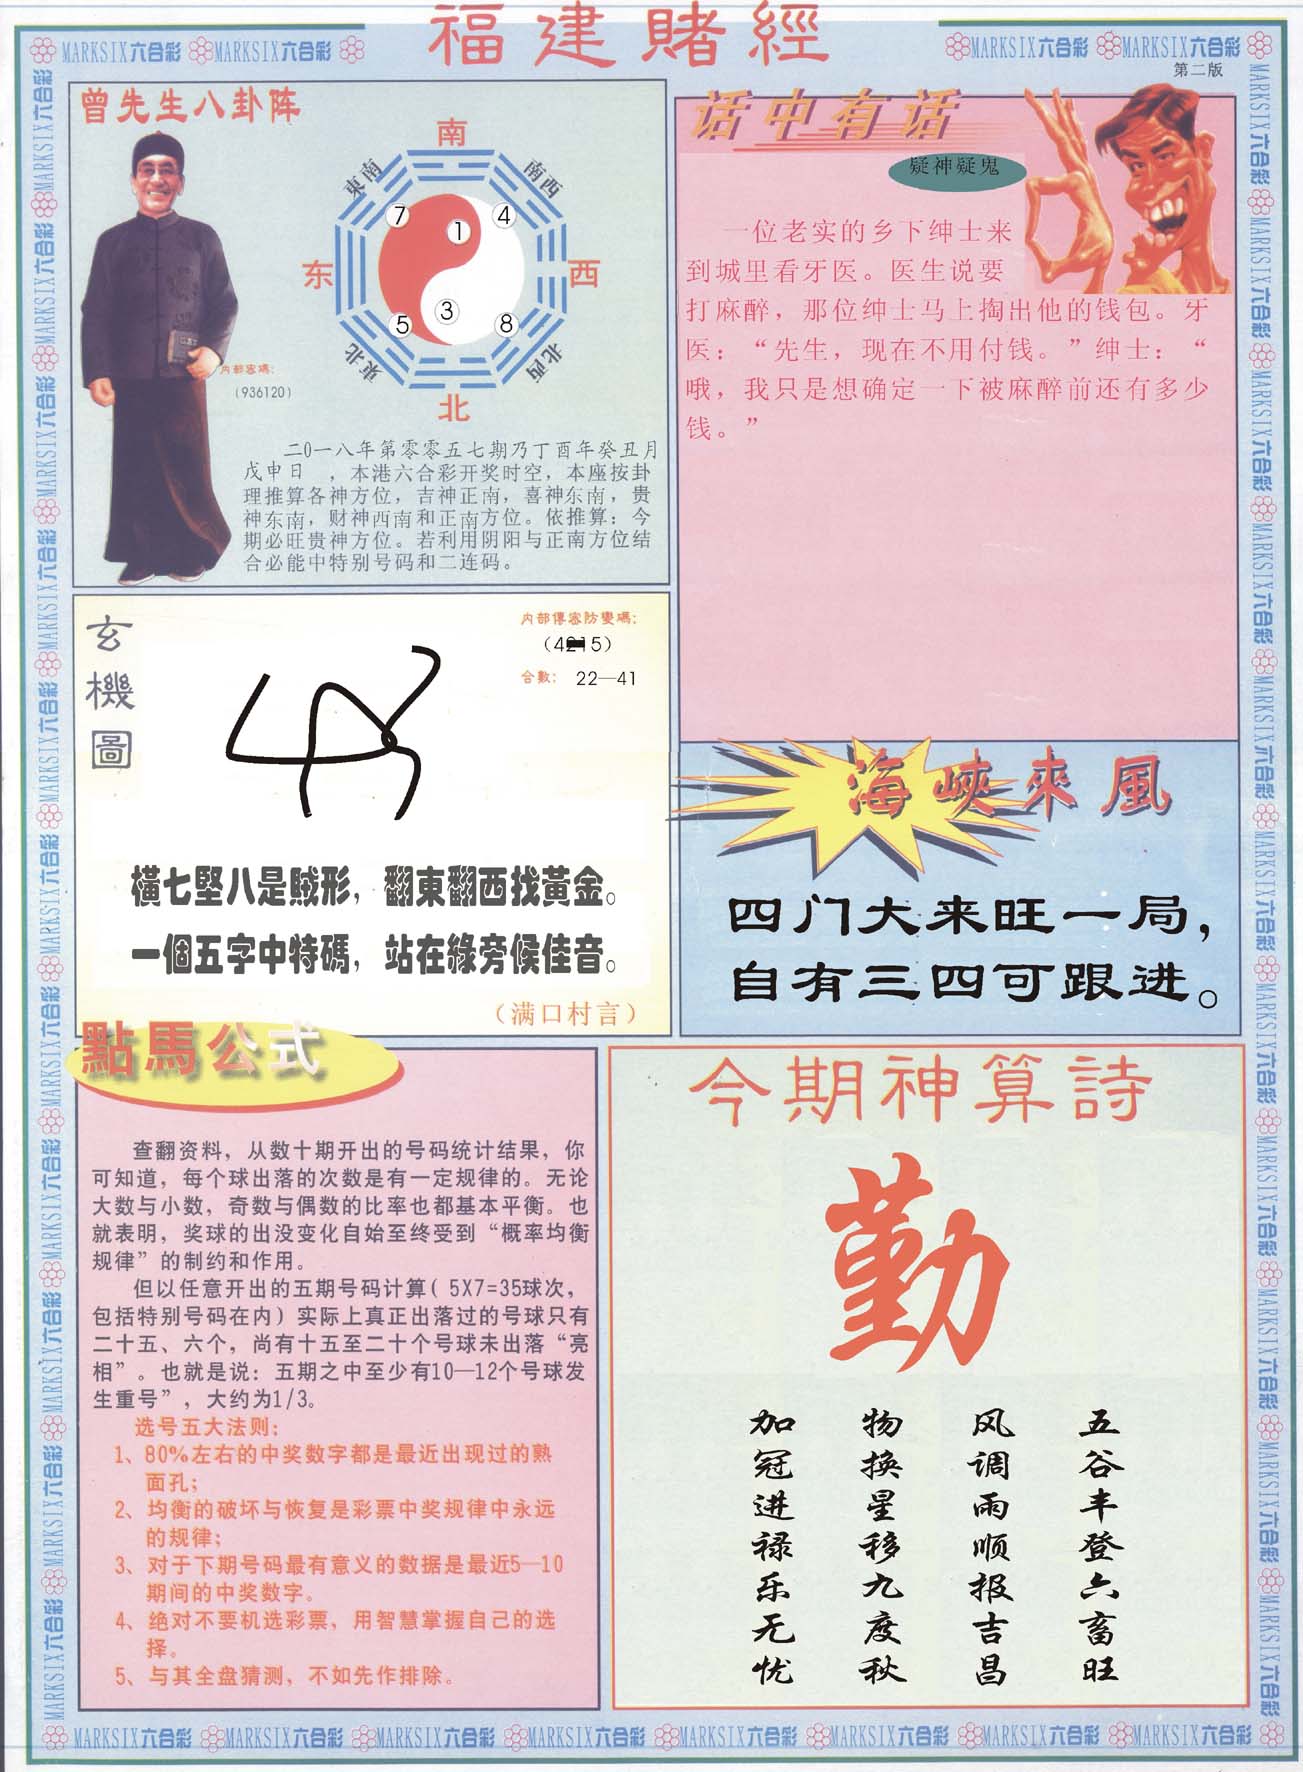 福建賭經
MARKSIX六合彩 MARKSIX六合彩
MARKSIX六合彩 MARKSIX六合彩
第二版
曾先生八卦阵
南
東南
南西
7
1
4
东
西
5
3
8
東北
北西
北
内部密碼：
（936120）
二0一八年第零零五七期乃丁酉年癸丑月
戊申日 ，本港六合彩开奖时空，本座按卦
理推算各神方位，吉神正南，喜神东南，贵
神东南，财神西南和正南方位。依推算：今
期必旺贵神方位。若利用阴阳与正南方位结
合必能中特别号码和二连码。
话中有话
疑神疑鬼
一位老实的乡下绅士来
到城里看牙医。医生说要
打麻醉，那位绅士马上掏出他的钱包。牙
医：“先生，现在不用付钱。”绅士：“
哦，我只是想确定一下被麻醉前还有多少
钱。”
玄機圖
内部傳密防變碼：
合數： 22—41
橫七堅八是賊形，翻東翻西找黃金。
一個五字中特碼，站在綠旁候佳音。
（满口村言）
海峽來風
四门大来旺一局，
自有三四可跟进。
點馬公式
查翻资料，从数十期开出的号码统计结果，你
可知道，每个球出落的次数是有一定规律的。无论
大数与小数，奇数与偶数的比率也都基本平衡。也
就表明，奖球的出没变化自始至终受到“概率均衡
规律”的制约和作用。
但以任意开出的五期号码计算（5X7=35球次，
包括特别号码在内）实际上真正出落过的号球只有
二十五、六个，尚有十五至二十个号球未出落“亮
相”。也就是说：五期之中至少有10—12个号球发
生重号”，大约为1/3。
选号五大法则：
1、80%左右的中奖数字都是最近出现过的熟
面孔；
2、均衡的破坏与恢复是彩票中奖规律中永远
的规律；
3、对于下期号码最有意义的数据是最近5—10
期间的中奖数字。
4、绝对不要机选彩票，用智慧掌握自己的选
择。
5、与其全盘猜测，不如先作排除。
今期神算詩
勤
五谷丰登六畜旺
风调雨顺报吉昌
物换星移九度秋
加冠进禄乐无忧
MARKSIX六合彩 MARKSIX六合彩 MARKSIX六合彩 MARKSIX六合彩 MARKSIX六合彩 MARKSIX六合彩 MARKSIX六合彩 MARKSIX六合彩